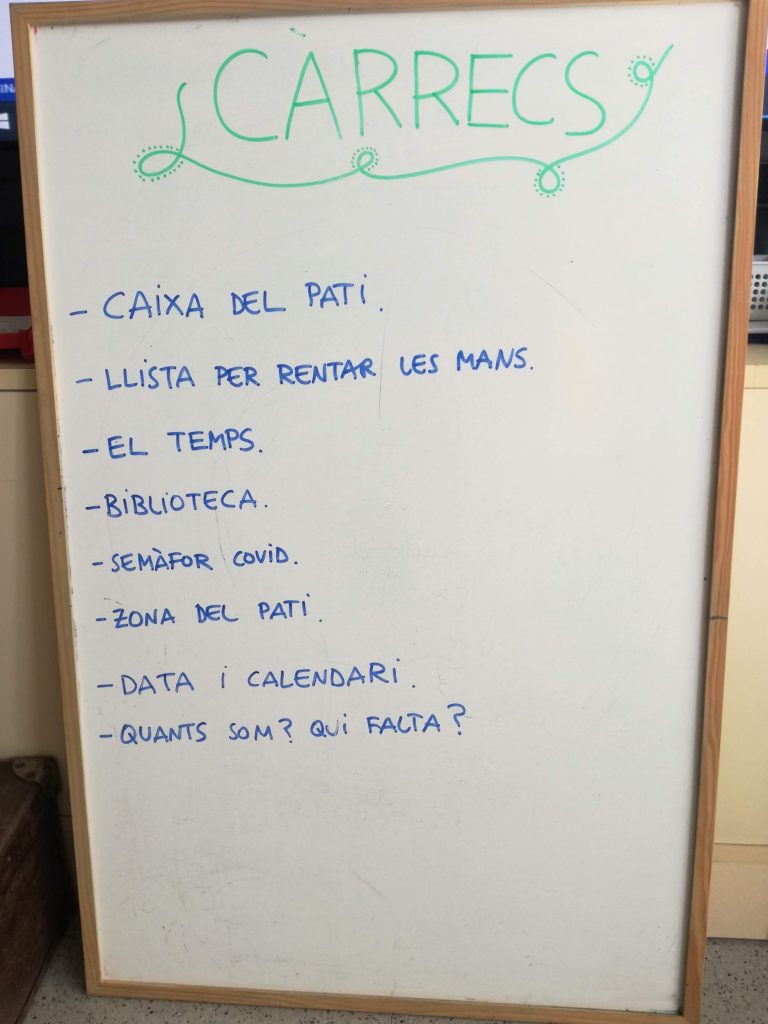 CÀRRECS
- CAIXA DEL PATI.
- LLISTA PER RENTAR LES MANS.
- EL TEMPS.
- BIBLIOTECA.
- SEMÀFOR COVID.
- ZONA DEL PATI.
- DATA I CALENDARI.
- QUANTS SOM? QUI FALTA?